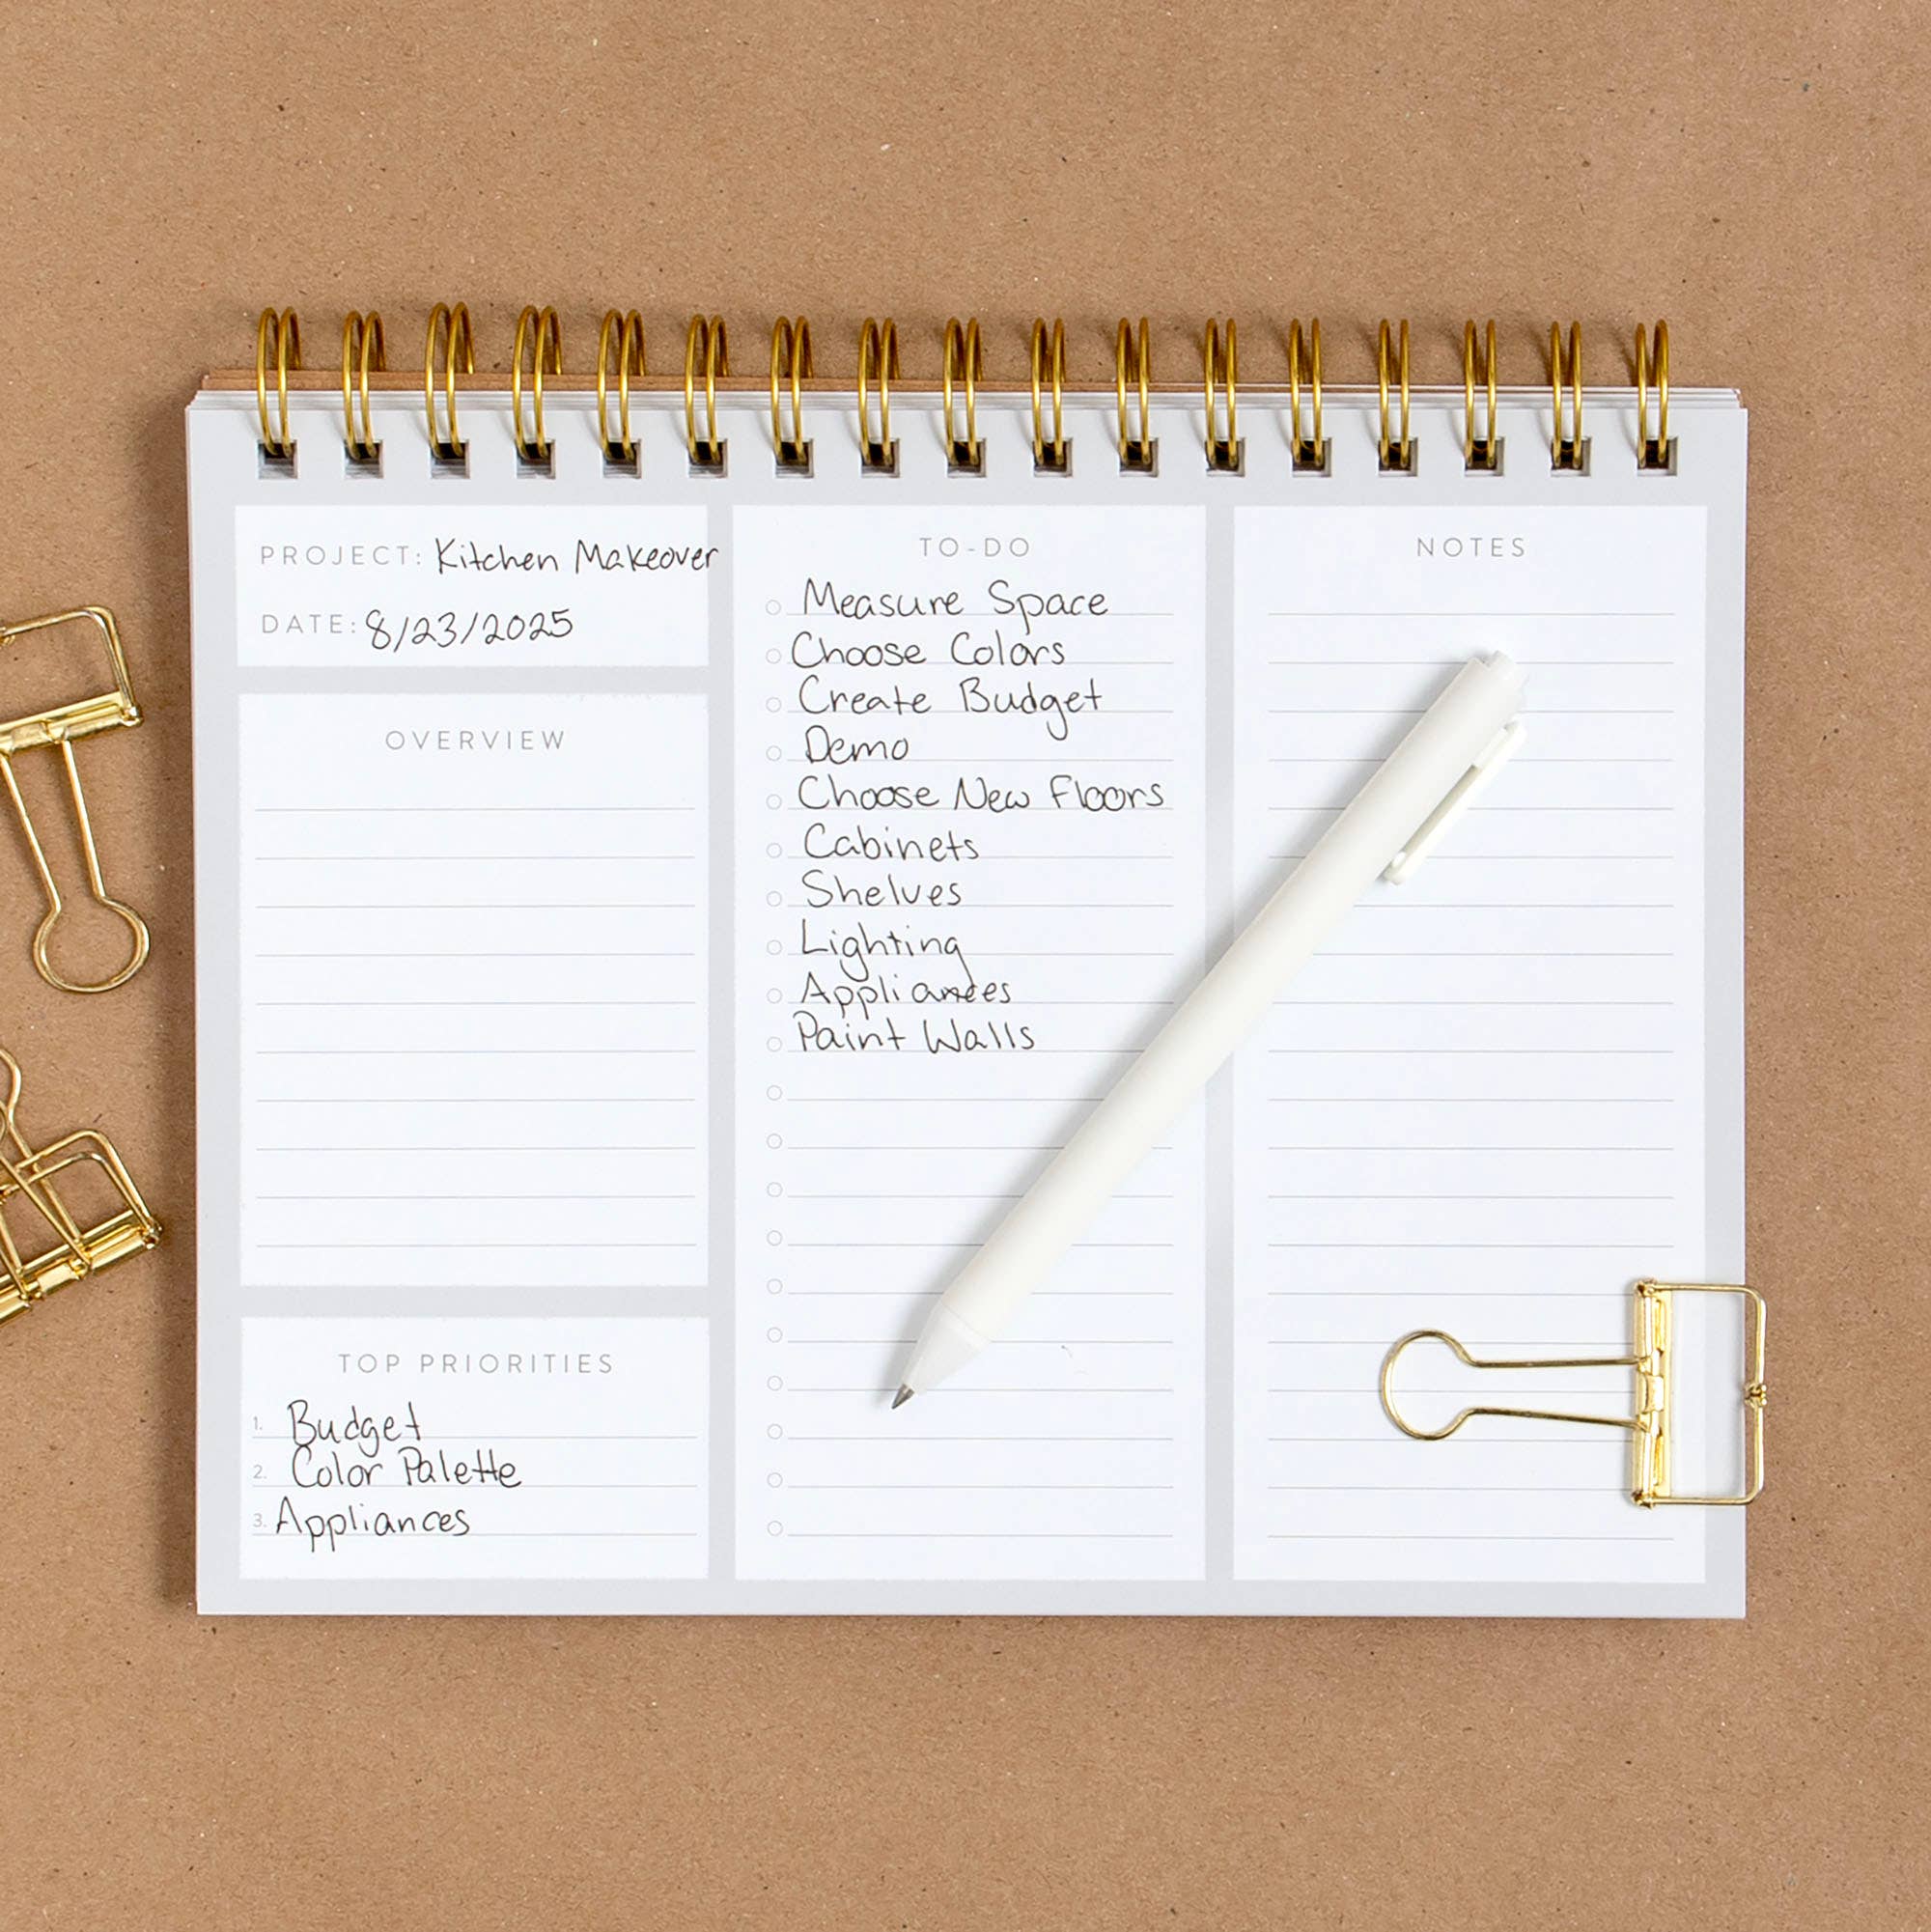 PROJECT: Kitchen Makeover
DATE: 8/23/2025
OVERVIEW
TOP PRIORITIES
1. Budget
2. Color Palette
3. Appliances
TO-DO
Measure Space
Choose Colors
Create Budget
Demo
Choose New Floors
Cabinets
Shelves
Lighting
Appliances
Paint Walls
NOTES